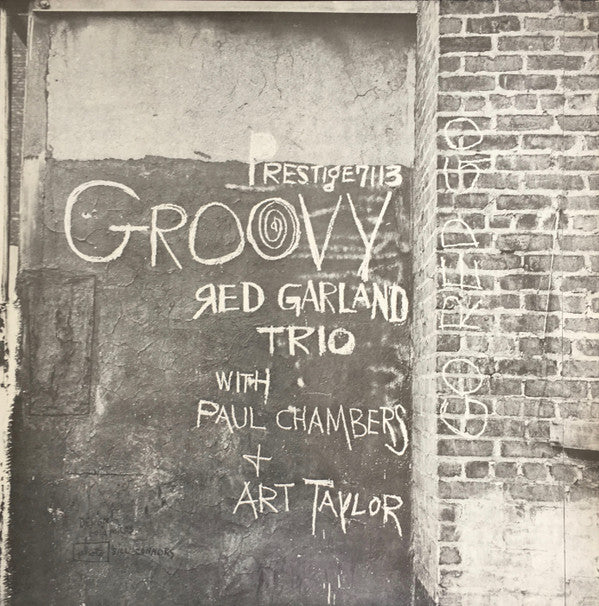 PRESTIGE 7113
GROOVY
RED GARLAND
TRIO
WITH
PAUL CHAMBERS
+
ART TAYLOR
GO RED GO
BILL CONNORS